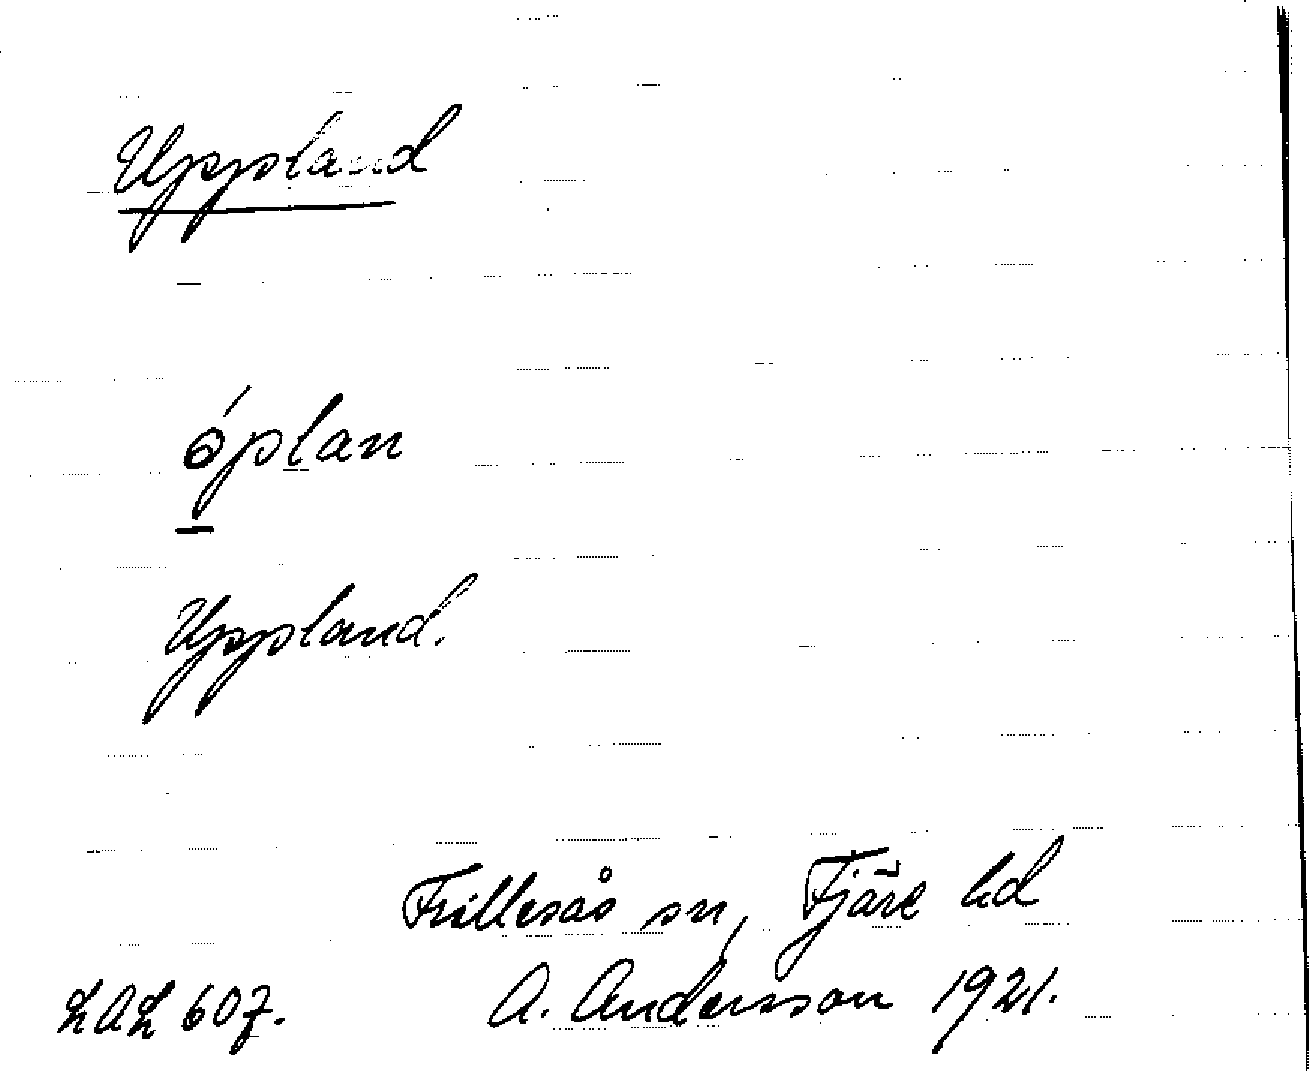 Uppland
óplan
Uppland.
Frillesås sn, Fjäre hd
LAL 607. A. Andersson 1921.